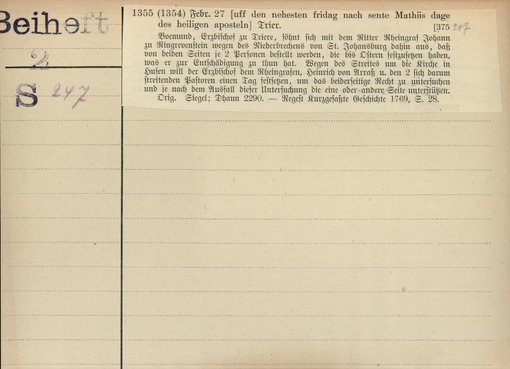 Beiheft
2
S 247
1355 (1354) Febr. 27 [uff den nehesten fridag nach sente Mathiis dage
des heiligen aposteln] Trier. [375 247
Boemund, Erzbischof zu Triere, söhnt sich mit dem Ritter Rheingraf Johann
zu Ringrevenstein wegen des Niederbrechens von St. Johansburg dahin aus, daß
von beiden Seiten je 2 Personen bestellt werden, die bis Ostern festzusetzen haben,
was er zur Entschädigung zu thun hat. Wegen des Streites um die Kirche in
Husen will der Erzbischof dem Rheingrafen, Heinrich von Arraß u. den 2 sich darum
streitenden Pastoren einen Tag festsetzen, um das beiderseitige Recht zu untersuchen
und je nach dem Ausfall dieser Untersuchung die eine oder andere Seite unterstützen.
Orig. Siegel; Dhaun 2290. — Regest Kurzgefaßte Geschichte 1769, S. 28.